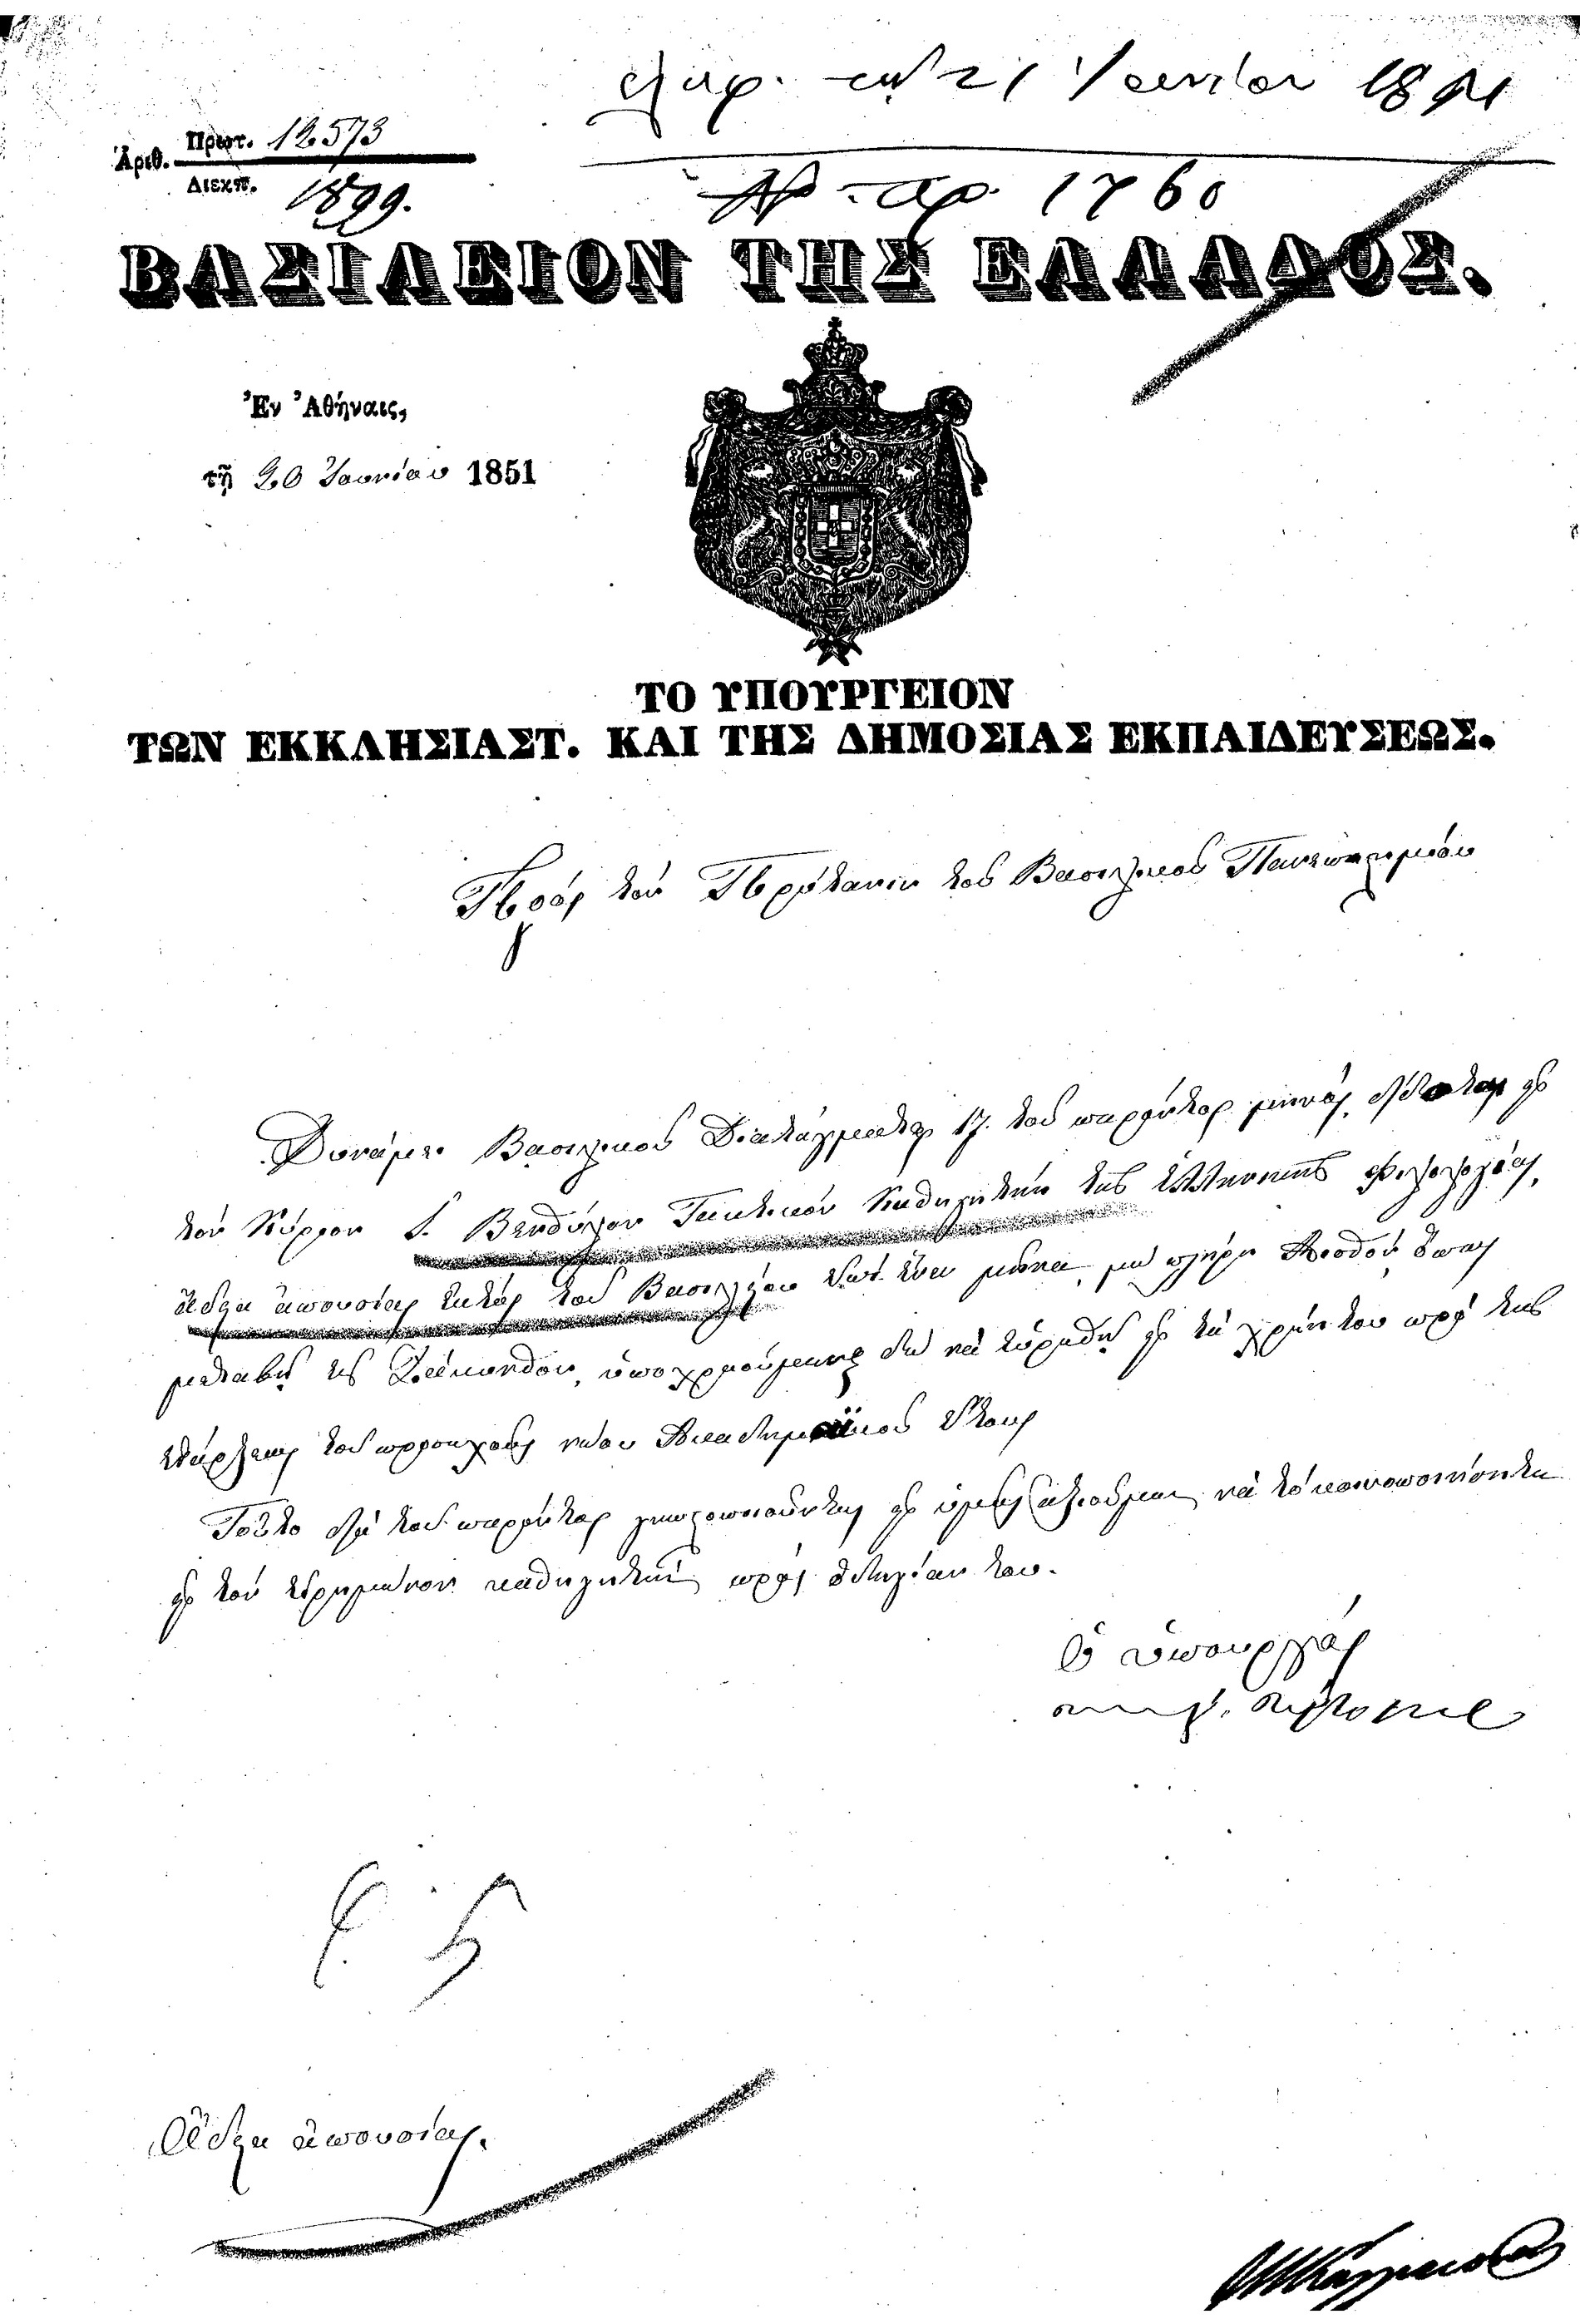 ἐλήφ. τῇ 21 Ἰουνίου 1851
Ἀριθ. Πρωτ. 12573
Διεκπ. 1899.
ἀρ. 1760
ΒΑΣΙΛΕΙΟΝ ΤΗΣ ΕΛΛΑΔΟΣ.
Ἐν Ἀθήναις,
τῇ 20 Ἰουνίου 1851
ΤΟ ΥΠΟΥΡΓΕΙΟΝ
ΤΩΝ ΕΚΚΛΗΣΙΑΣΤ. ΚΑΙ ΤΗΣ ΔΗΜΟΣΙΑΣ ΕΚΠΑΙΔΕΥΣΕΩΣ.
Πρὸς τὸν Πρύτανιν τοῦ Βασιλικοῦ Πανεπιστημίου
Δυνάμει Βασιλικοῦ Διατάγματος 17. τοῦ παρόντος μηνός, δίδεται εἰς
τὸν Κύριον Γ. Βενθύλον Τακτικὸν Καθηγητὴν τῆς Ἑλληνικῆς Φιλολογίας,
ἄδεια ἀπουσίας ἐκτὸς τοῦ Βασιλείου ἐπὶ ἕνα μῆνα, μὲ πλήρη μισθόν, ὅπως
μεταβῇ εἰς Ζάκυνθον, ὑποχρεούμενος δὲ νὰ εὑρεθῇ εἰς τὰ χρέη του πρὸ τῆς
ἐνάρξεως τοῦ προσεχοῦς νέου Ἀκαδημαϊκοῦ ἔτους
Τοῦτο διὰ τοῦ παρόντος γνωστοποιοῦντες εἰς ὑμᾶς ἀξιοῦμεν νὰ τὸ κοινοποιήσητε
εἰς τὸν εἰρημένον καθηγητὴν πρὸς ὁδηγίαν του.
Ὁ ὑπουργὸς
Ἄδεια ἀπουσίας.